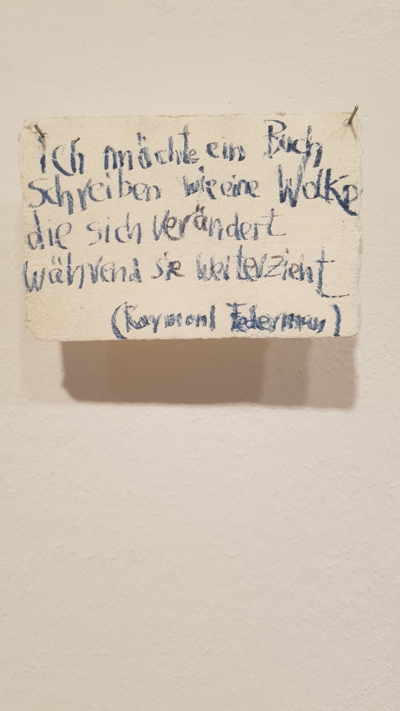 Ich möchte ein Buch
Schreiben wie eine Wolke
die sich verändert
während sie weiterzieht
(Raymond Federman)